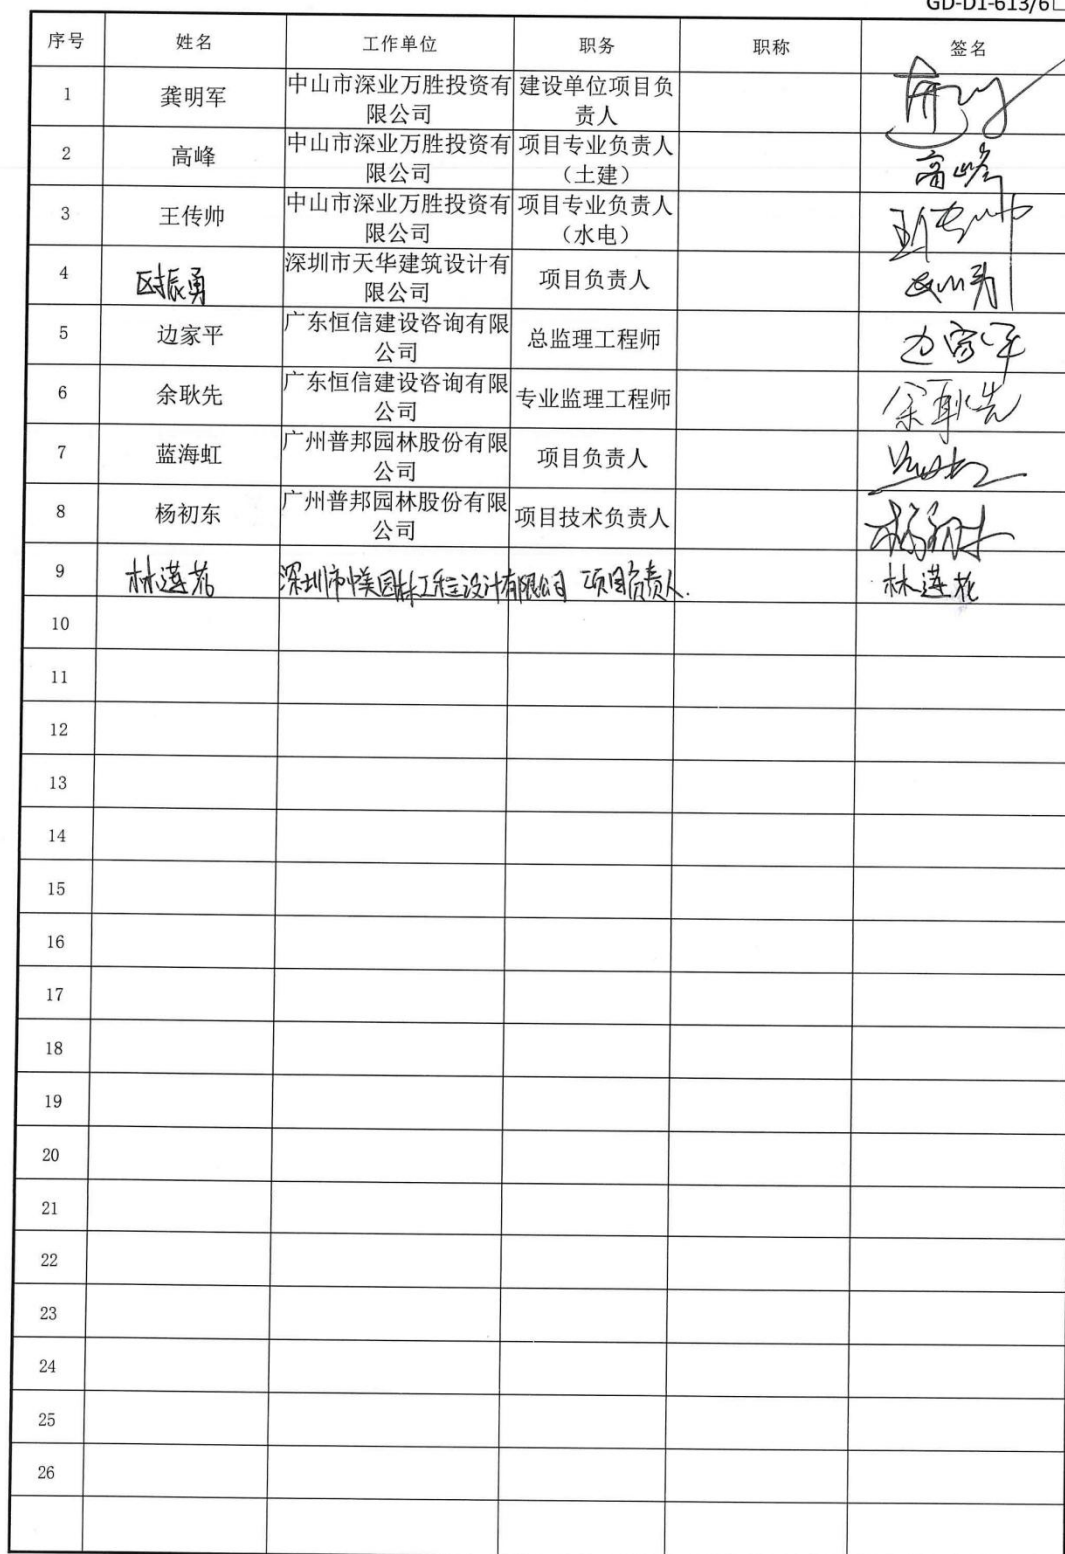 GD-D1-613/6□
序号 姓名 工作单位 职务 职称 签名
1 龚明军 中山市深业万胜投资有限公司 建设单位项目负责人
2 高峰 中山市深业万胜投资有限公司 项目专业负责人（土建） 高峰
3 王传帅 中山市深业万胜投资有限公司 项目专业负责人（水电） 王传帅
4 区振勇 深圳市天华建筑设计有限公司 项目负责人
5 边家平 广东恒信建设咨询有限公司 总监理工程师 边家平
6 余耿先 广东恒信建设咨询有限公司 专业监理工程师 余耿先
7 蓝海虹 广州普邦园林股份有限公司 项目负责人
8 杨初东 广州普邦园林股份有限公司 项目技术负责人 杨初东
9 林莲花 深圳市 美园林工程设计有限公司 项目负责人. 林莲花
10
11
12
13
14
15
16
17
18
19
20
21
22
23
24
25
26